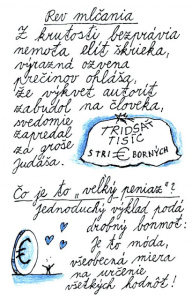 Rev mlčania
Z krutosti bezprávia
nemota elít škrieka,
výrazná ozvena
prečinov ohláša,
že výkvet autorít
zabudol na človeka,
svedomie
zapredal
za groše
Judáša.
TRIDSAŤ
TISÍC
STRI€BORNÝCH
Čo je to „veľký peniaz"?
Jednoduchý výklad podá
drobný bonmot:
Je to móda,
všeobecná miera
na určenie
všetkých hodnôt!
€